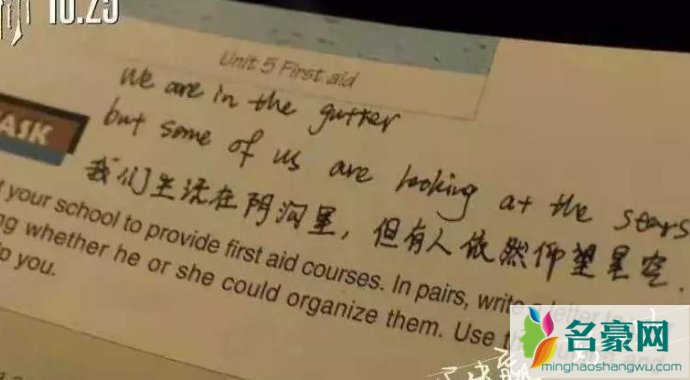 10.25
Unit 5 First aid
We are in the gutter
but some of us are looking at the stars
我们生活在阴沟里，但有人依然仰望星空.
ASK
t your school to provide first aid courses. In pairs, write a letter to
ng whether he or she could organize them. Use th
lp you.
名豪网
minghaoshangwu.com